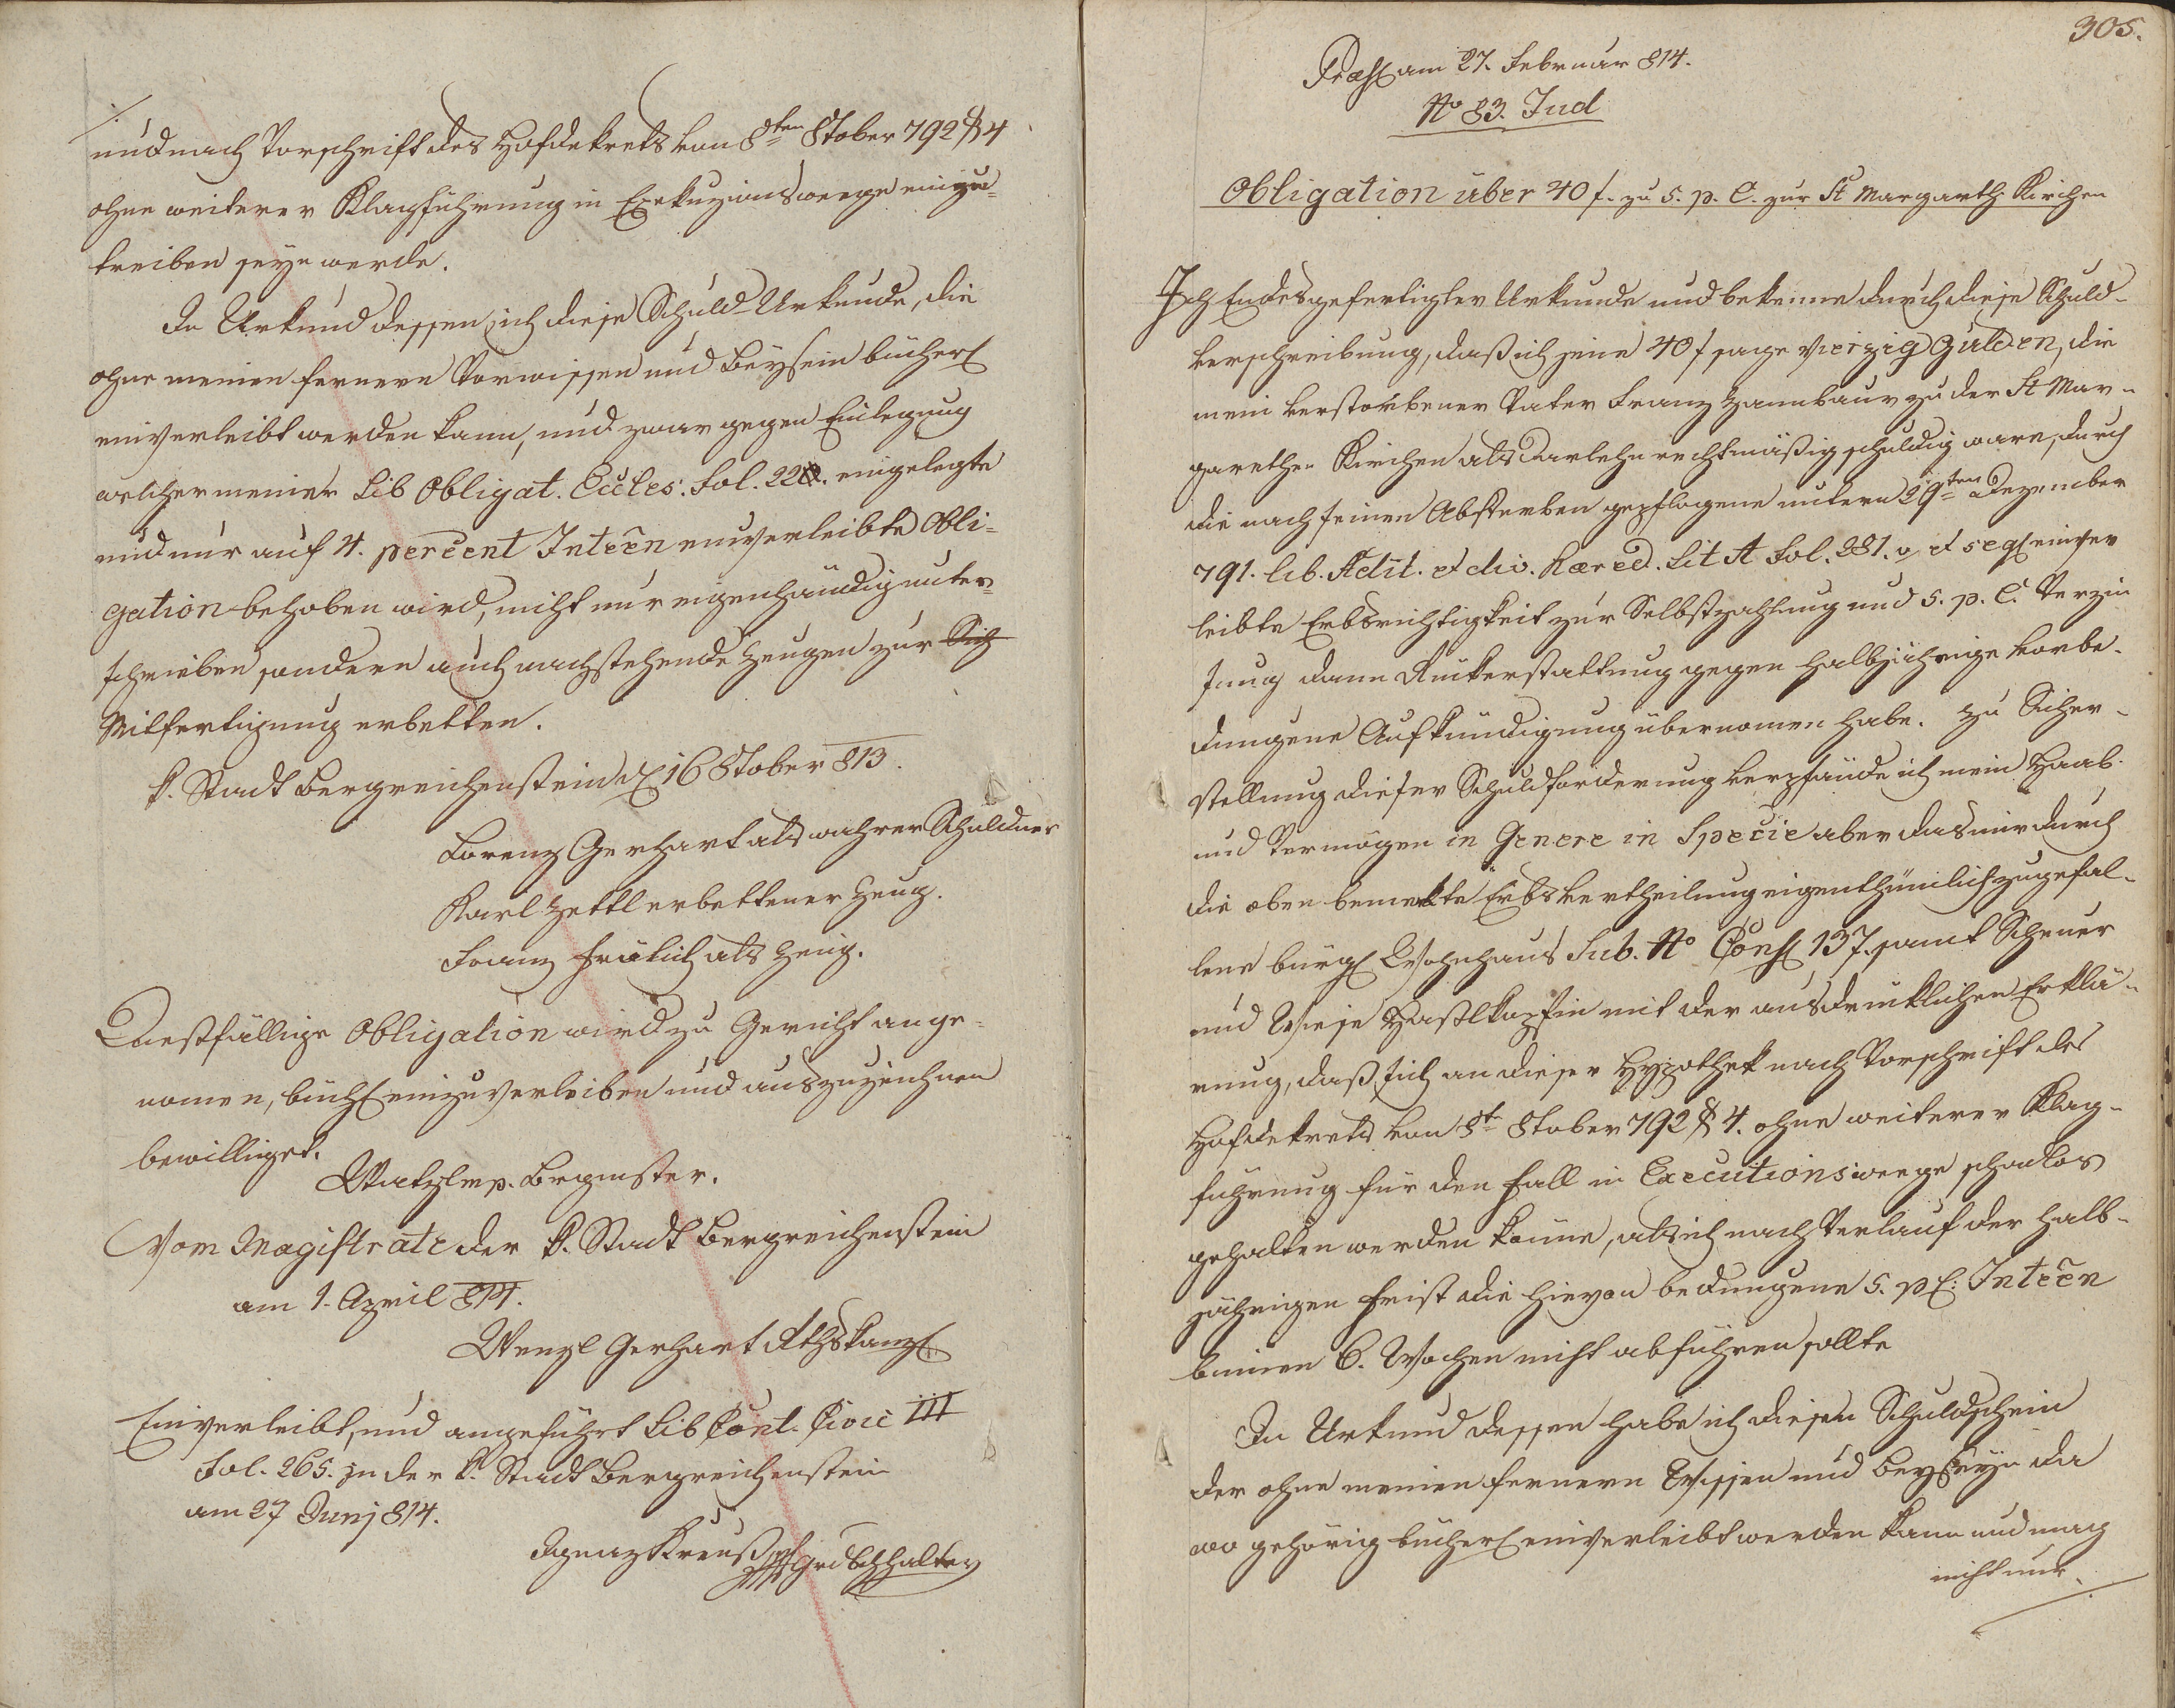 und nach Vorschrift des Hofdekrets von 8ten 8tober 792 § 4
ohne weiterer Klagführung in Exekuzionsweege einzu=
treiben seyn werde.
In Urkund dessen ich diese Schuld-Urkunde, die
ohne meinen fernern Vorwissen und Beysein bücherl
einverleibt werden kann, und zwar gegen Einlegung
welcher meiner Lib Obligat. Eccles: Fol. 22. eingelegte
und nur auf 4. percent Inteẽn einverleibte Obli=
gation behoben wird, nicht nur eigenhändig unter=
schrieben sondern auch nachstehende Zeugen zur Sich
Mitfertigung erbetten.
K. Stadt Bergreichenstein d 16 8tober 813.
Lorenz Gerhart als wahrer Schuldner
Karl Zettl erbettener Zeug.
Franz Frölich als Zeug.
Diesfällige Obligation wird zu Gericht ange=
nomen, büchl einzuverleiben und auszuzeichnen
bewilliget.
Watzl mp. Brgmster.
Vom Magistrate der K. Stadt Bergreichenstein
am 1. April 814.
Wenzl Gerhart Rthskanzl
Einverleibt, und angeführt Lib Cont. Civic III
Fol. 265. zu der K. Stadt Bergreichenstein
am 27 Junj 814.
Ignaz Kreuß Grdbchhalter
305.
Præs am 27. Februar 814.
No 83. Jud
Obligation über 40 f. zu 5. p. C. zur St Margarth Kirchen
Ich Endesgefertigter Urkunde und bekenne durch diese Schuld-
verschreibung, daß ich jene 40 f sage Vierzig Gulden, die
mein verstorbener Vater Franz Hannbaur zu der St Mar-
garethen Kirchen als Darlehn rechtmäßig schuldig ware, durch
die nach seinen Absterben gepflogene untern 29ten Dezember
791. lib. Adit. et div. hæred. Lit A Fol. 281. v et seq einver
leibte Erbsrichtigkeit zur Selbstzahlung und 5. p. C. Verzin
sung dann Rückerstattung gegen halbjährige vorbe-
dungene Aufkündigung übernomen habe. Zu Sicher-
stellung dieser Schuldforderung verpfände ich mein Haab
und Vermögen in Genere in Specie aber das mir durch
die oben bemerkte Erbsvertheilung eigenthümlich zugefal-
lene bürgl Wohnhaus Sub. No Cons 137. samt Scheuer
und Wiese Haßlkopfin mit der ausdrücklichen Erklä-
rung, daß sich an dieser Hypothek nach Vorschrift des
Hofdekrets von 8t 8tober 792 § 4. ohne weiterer Klag-
führung für den Fall in Executionsweege schadlos
gehalten werden könne, als ich nach Verlauf der halb-
jährigen Frist die hievon bedungene 5. p C: Inteẽn
binnen 6. Wochen nicht abführen sollte
In Urkund dessen habe ich diesen Schuldschein
der ohne meinen fernern Wissen und Beyseyn da
wo gehörig bücherl einverleibt werden kann und mag
nicht nur